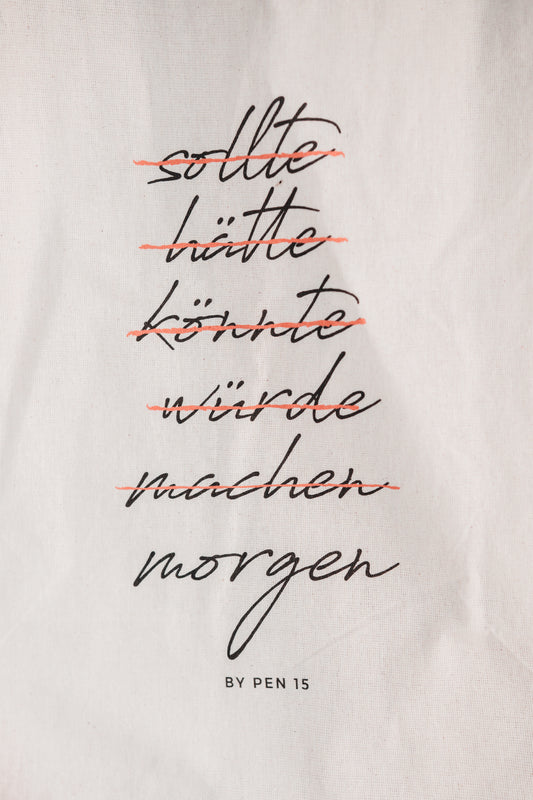 sollte
hätte
könnte
würde
machen
morgen
BY PEN 15